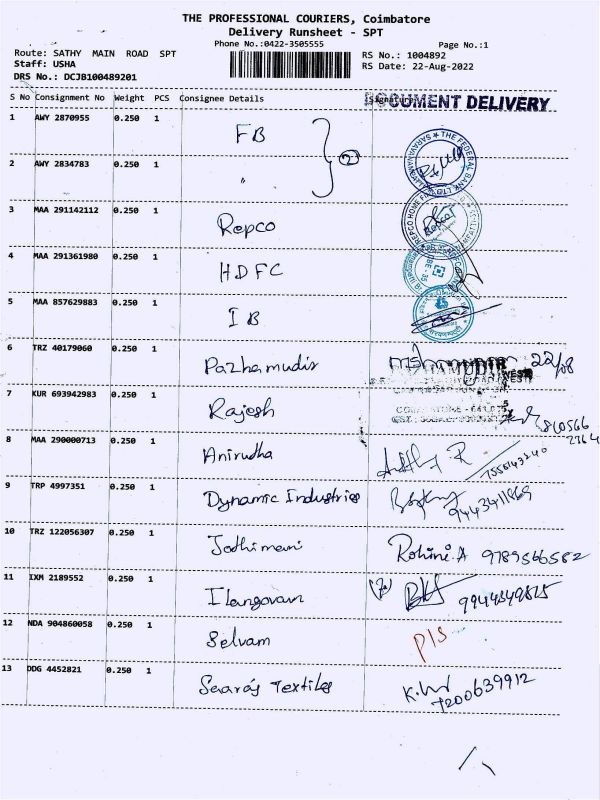 THE PROFESSIONAL COURIERS, Coimbatore
Delivery Runsheet - SPT
Phone No.:0422-3505555
Page No.:1
Route: SATHY MAIN ROAD SPT
RS No.: 1004892
Staff: USHA
RS Date: 22-Aug-2022
DRS No.: DCJB100489201
S No Consignment No Weight PCS Consignee Details Signature
DOCUMENT DELIVERY
1 AWY 2870955 0.250 1 FB
2 AWY 2834783 0.250 1 "
3 MAA 291142112 0.250 1 Repco
4 MAA 291361980 0.250 1 HDFC
5 MAA 857629883 0.250 1 IB
6 TRZ 40179060 0.250 1 Pazhamudir 22/08
7 KUR 693942983 0.250 1 Rajesh
8 MAA 290000713 0.250 1 Anirudha
9 TRP 4997351 0.250 1 Dynamic Industries
10 TRZ 122056307 0.250 1 Jodhimani Rohini.A 9789566582
11 IXM 2189552 0.250 1 Ilangovan
12 NDA 904860058 0.250 1 Selvam P/S
13 DDG 4452821 0.250 1 Saarás Textiles 7200639912